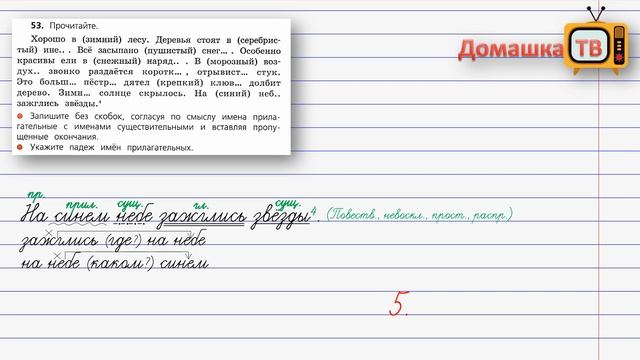 53. Прочитайте.
Хорошо в (зимний) лесу. Деревья стоят в (серебрис-
тый) ине.. . Всё засыпано (пушистый) снег... . Особенно
красивы ели в (снежный) наряд.. . В (морозный) воз-
дух.. звонко раздаётся коротк... , отрывист... стук.
Это больш... пёстр... дятел (крепкий) клюв... долбит
дерево. Зимн... солнце скрылось. На (синий) неб..
зажглись звёзды.⁴
Запишите без скобок, согласуя по смыслу имена прила-
гательные с именами существительными и вставляя пропу-
щенные окончания.
Укажите падеж имён прилагательных.
Домашка ТВ
пр. прил. сущ. гл. сущ.
На синем небе зажглись звёзды⁴. (Повеств., невоскл., прост., распр.)
зажглись (где?) на небе
на небе (каком?) синем
5.